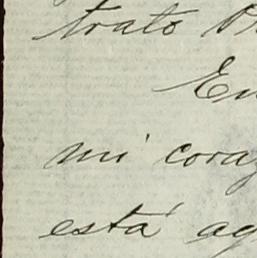 trato
En
mi coraz
está ag